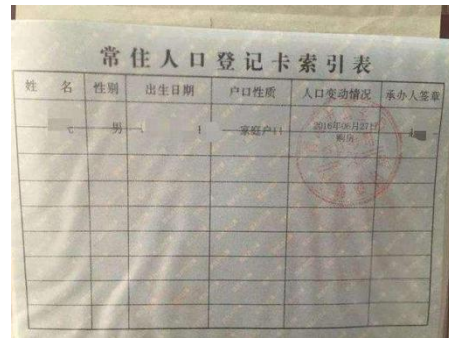 常住人口登记卡索引表
姓 名 性别 出生日期 户口性质 人口变动情况 承办人签章
男 家庭户口 2016年06月27日
购房